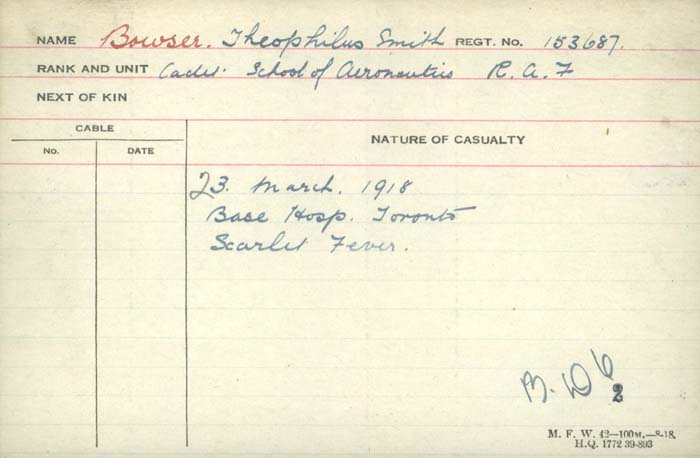 NAME Bowser. Theophilus Smith REGT. No. 153687.
RANK AND UNIT Cadet. School of Aeronautics R.A.F
NEXT OF KIN
CABLE
No. DATE
NATURE OF CASUALTY
23. March. 1918
Base Hosp. Toronto
Scarlet Fever.
2
M. F. W. 42—100M.—8-18.
H.Q. 1772 39-893